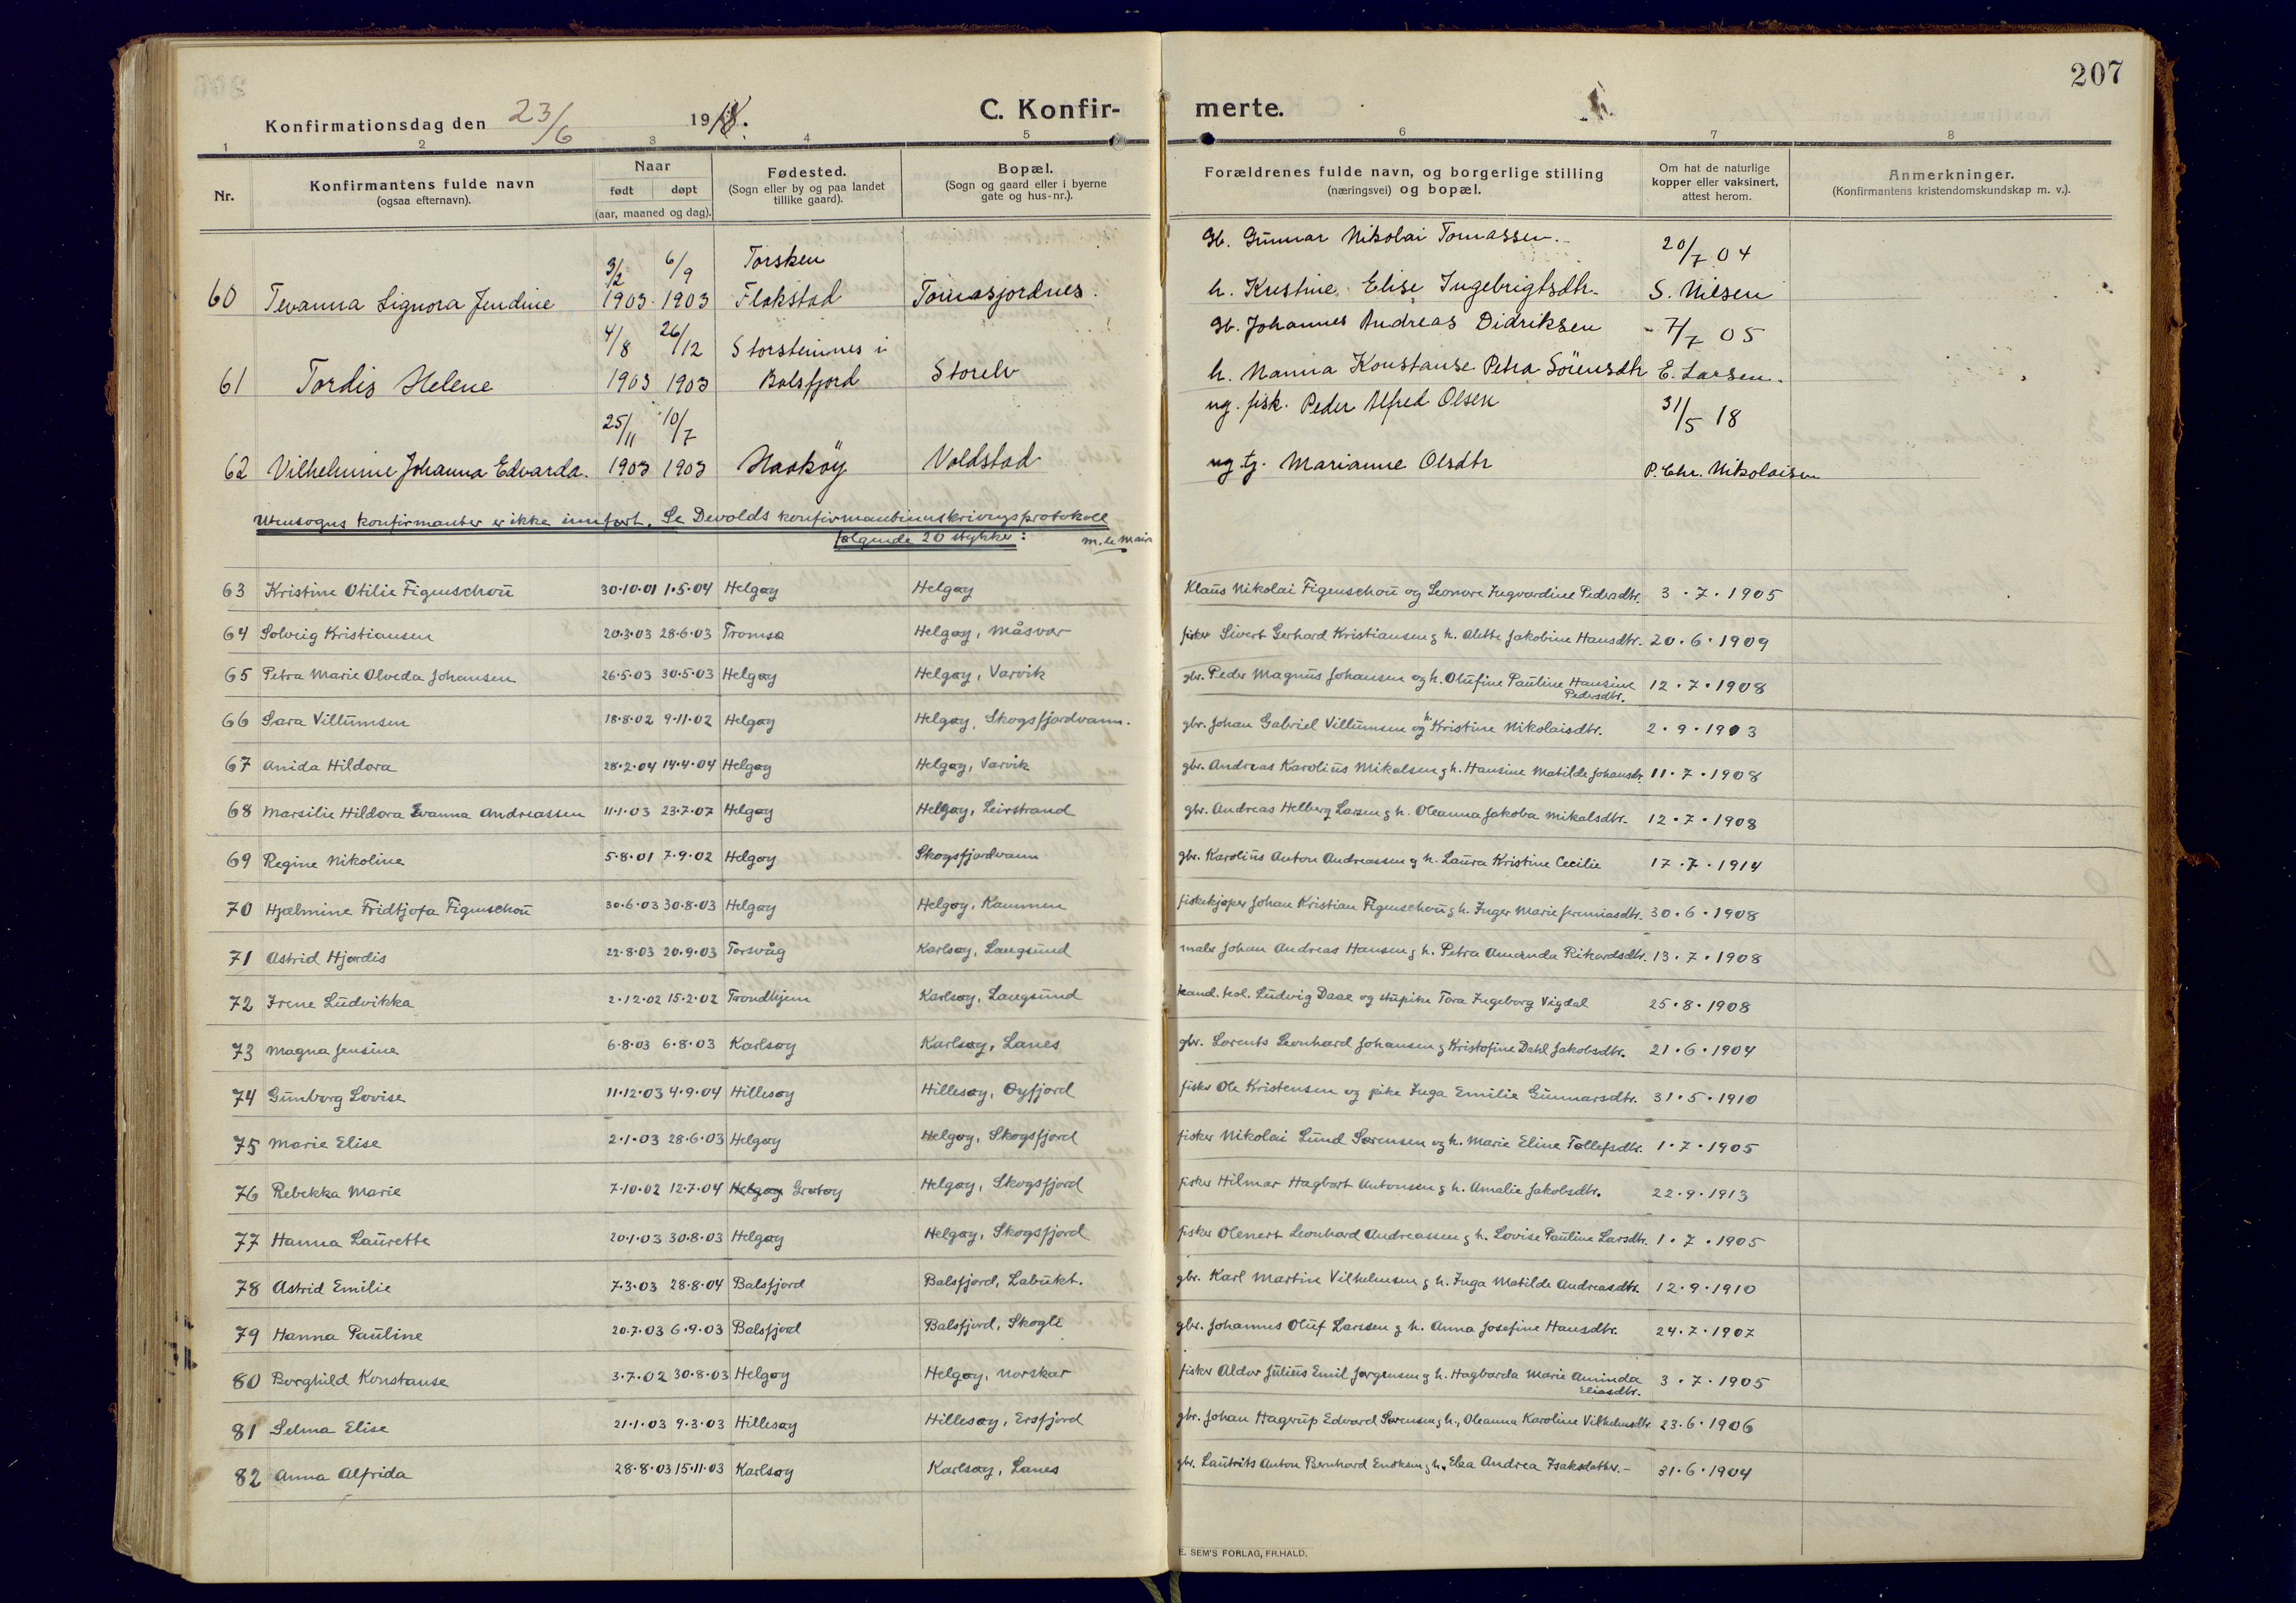 207
Konfirmationsdag den 23/6 1918.
C. Konfirmerte.
1 2 3 4 5 6 7 8
Nr.
Konfirmantens fulde navn
(ogsaa efternavn).
Naar
født døpt
(aar, maaned og dag).
Fødested.
(Sogn eller by og paa landet
tillike gaard).
Bopæl.
(Sogn og gaard eller i byerne
gate og hus-nr.).
Forældrenes fulde navn, og borgerlige stilling
(næringsvei) og bopæl.
Om hat de naturlige
kopper eller vaksinert,
attest herom.
Anmerkninger.
(Konfirmantens kristendomskundskap m. v.).
3/2 6/9 Torsken Gb. Gunnar Nikolai Tomassen. 20/7 04
60 Tevanna Signora Jendine 1903 1903 Flakstad Tomasjordnes. h. Kristine Elise Ingebrigtsdtr. S. Nilsen
4/8 26/12 Storsteinnes i Gb. Johannes Andreas Didriksen 7/7 05
61 Tordis Helene 1903 1903 Balsfjord Storelv h. Nanna Konstanse Petra Sörensdtr E. Larsen.
25/11 10/7 ug. fisk. Peder Alfred Olsen 31/5 18
62 Vilhelmine Johanna Edvarda. 1903 1903 Haaköy Voldstad ug. tj. Marianne Olsdtr P. Chr. Nikolaisen
Utensogns konfirmanter er ikke innført. Se Devolds konfirmantinnskrivngsprotokoll
følgende 20 stykker:
63 Kristine Otilie Figenschou 30.10.01 1.5.04 Helgøy Helgøy Klaus Nikolai Figenschou og Leonore Ingvardine Pedersdtr. 3.7.1905
64 Solveig Kristiansen 20.3.03 28.6.03 Tromsø Helgøy, Måsvær fisker Sivert Gerhard Kristiansen g h. Alette Jakobine Hansdtr. 20.6.1909
65 Petra Marie Olveda Johansen 26.5.03 30.5.03 Helgøy Helgøy, Varvik gbr. Peder Magnus Johansen og h. Olufine Pauline Hansine Pedersdtr. 12.7.1908
66 Sara Villumsen 18.8.02 9.11.02 Helgøy Helgøy, Skogsfjordvann. gbr. Johan Gabriel Villumsen og h. Kristine Nikolaisdtr. 2.9.1903
67 Anida Hildora 28.2.04 14.4.04 Helgøy Helgøy, Varvik gbr. Andreas Karolius Mikalsen g h. Hansine Matilde Johansdtr. 11.7.1908
68 Marsilie Hildora Evanna Andreassen 11.1.03 23.7.07 Helgøy Helgøy, Leirstrand gbr. Andreas Helberg Larsen g h. Oleanna Jakoba Mikalsdtr. 12.7.1908
69 Regine Nikoline 5.8.01 7.9.02 Helgøy Skogsfjordvann gbr. Karolius Anton Andreassen g h. Laura Kristine Cecilie 17.7.1914
70 Hjalmine Fridtjofa Figenschou 30.6.03 30.8.03 Helgøy Helgøy, Kammen fiskekjøper Johan Kristian Figenschou g h. Inger Marie Jeremiasdtr. 30.6.1908
71 Astrid Hjørdis 22.8.03 20.9.03 Torsvåg Karlsøy, Langsund maler Johan Andreas Hansen g h. Petra Amanda Rikardsdtr. 13.7.1908
72 Irene Ludvikka 2.12.02 15.2.02 Trondhjem Karlsøy, Langsund kand. teol. Ludvig Daae og stupike Tora Ingeborg Vigdal 25.8.1908
73 Magna Jensine 6.8.03 6.8.03 Karlsøy Karlsøy, Lanes gbr. Lorents Leonhard Johansen g Kristofine Dahl Jakobsdtr. 21.6.1904
74 Gunborg Lovise 11.12.03 4.9.04 Hillesøy Hillesøy, Øyfjord fisker Ole Kristensen og pike Inga Emilie Gunnarsdtr. 31.5.1910
75 Marie Elise 2.1.03 28.6.03 Helgøy Helgøy, Skogsfjord fisker Nikolai Lund Sørensen og h. Marie Eline Tollefsdtr. 1.7.1905
76 Rebekka Marie 7.10.02 12.7.04 Helgøy Grøtøy Helgøy, Skogsfjord fisker Hilmar Hagbart Antonsen g h. Amalie Jakobsdtr. 22.9.1913
77 Hanna Laurette 20.1.03 30.8.03 Helgøy Helgøy, Skogsfjord fisker Olenert Leonhard Andreassen g h. Lovise Pauline Larsdtr. 1.7.1905
78 Astrid Emilie 7.3.03 28.8.04 Balsfjord Balsfjord, Labukt. gbr. Karl Martin Vilhelmsen g h. Inga Matilde Andreasdtr. 12.9.1910
79 Hanna Pauline 20.7.03 6.9.03 Balsfjord Balsfjord, Skogli gbr. Johannes Oluf Larssen g h. Anna Josefine Hansdtr. 24.7.1907
80 Borghild Konstanse 3.7.02 30.8.03 Helgøy Helgøy, Norskar fisker Aldor Julius Emil Jørgensen g h. Hagbarda Marie Aminda Eliasdtr. 3.7.1905
81 Selma Elise 21.1.03 9.3.03 Hillesøy Hillesøy, Ersfjord gbr. Johan Hagerup Edvard Sørensen g h. Oleanna Karoline Vilhelmsdtr. 23.6.1906
82 Anna Alfrida 28.8.03 15.11.03 Karlsøy Karlsøy, Lanes gbr. Lautrits Anton Bernhard Enoksen g h. Elea Andrea Isaksdatter. 31.6.1904
E. SEM'S FORLAG, FR.HALD.